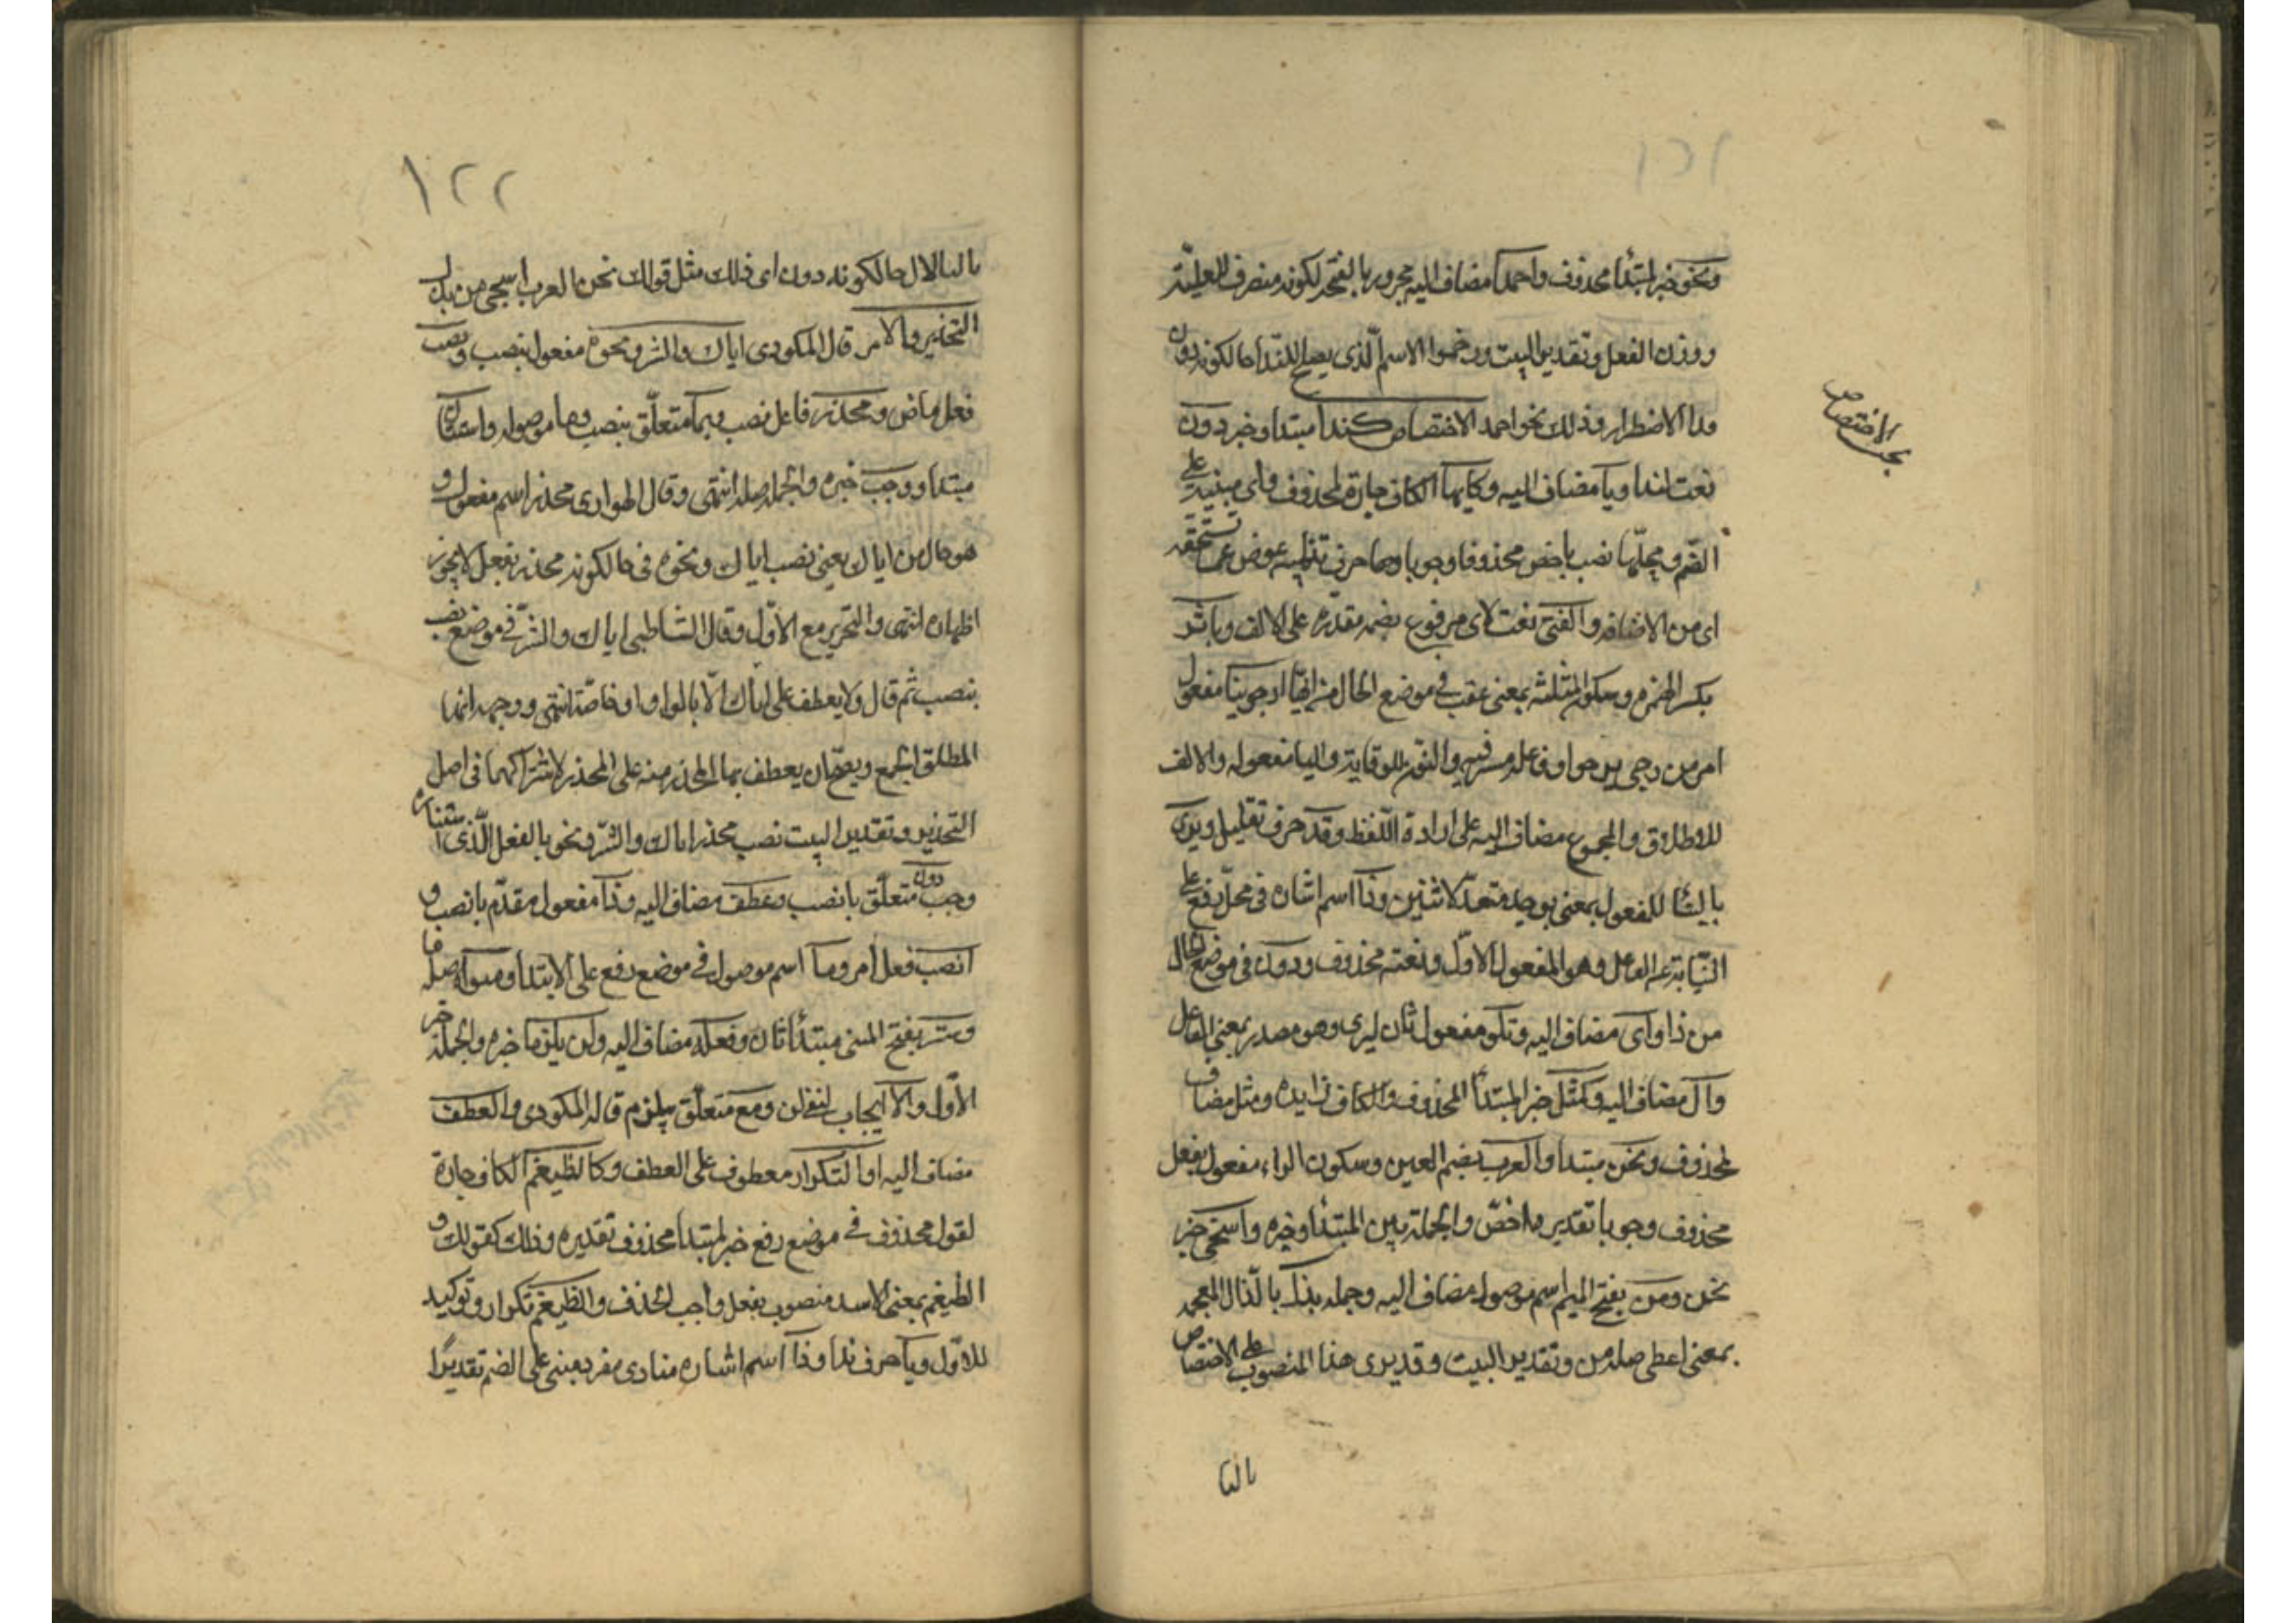 ١٢١
ونحو خبر لمبتدأ محذوف واحمدا مضاف اليه مجرور بالفتحة لكونه منصرف للعلمية
ووزن الفعل وتقدير البيت ورخموا الاسم الذى يصلح للندا حالكونه دون
ندا الاضطرار وذلك نحو احمد الاختصاص كندا مبتدا وخبر دون
نعت لندا ويا مضاف اليه وكايها الكاف جارة لمحذوف واى مبنية على
الضم ومحلها نصب باخص محذوفا وجوبا وها حرف تنبيه عوض عما تستحقه
اى من الاضافة والفتى نعت لاى مرفوع بضمة مقدرة على الالف وباثر
بكسر الهمزة وسكون المثلثة بمعنى عقب فى موضع الحال من ايها ارجونيا مفعول
امر من رجى يرجوا وفاعله مستتر فيه والنون للوقاية واليا مفعوله والالف
للاطلاق والمجموع مضاف اليه على ارادة اللفظ وقد حرف تقليل ويرى
بالبنا للمفعول بمعنى يوجد متعد لاثنين وذا اسم اشاره فى محل رفع على
النيابة عن الفاعل وهو المفعول الاول ونعته محذوف ودون فى موضع الحال
من ذا واى مضاف اليه وتلو مفعول ثان ليرى وهو مصدر بمعنى الفاعل
وال مضاف اليه وكمثل خبر المبتدا المحذوف والكاف زايده ومثل مضاف
لمحذوف ونحن مبتدا والعرب بضم العين وسكون الراء مفعول بفعل
محذوف وجوبا تقديره اخص والجملة بين المبتدأ وخبره واسخى خبر
نحن ومن بفتح الميم اسم موصول مضاف اليه وجملة بذل بالذال المعجمة
بمعنى اعطى صلة من وتقدير البيت وقد يرى هذا المنصوب على الاختصاص
بحث الاختصاص
بالتا
١٢٢
حالكونه دون اى ذلك مثل قولك نحن العرب اسخى من بذل
التحذير والاغر قال المكودى اياك والشر ونحوه مفعول بنصب ونصب
فعل ماض ومحذر فاعل نصب وبما متعلق بنصب وما موصولة واستتاره
مبتدا ووجب خبره والجملة صلة انتهى وقال الهوارى محذر اسم مفعول و
هو حال من اياك يعنى نصب اياك ونحوه فى حالكونه محذر بفعل لا يجوز
اظهاره انتهى والتحرير مع الاول وقال الشاطبى اياك والشر فى موضع نصب
بنصب ثم قال ولا يعطف على اياك الا بالواو خاصة انتهى ووجهه انها
المطلق الجمع ويصح ان يعطف بها المحذر منه على المحذر لاشتراكهما فى اصل
التحذير وتقدير البيت نصب محذر اياك والشر ونحو بالفعل الذى استتاره
وجب ودون متعلق بانصب وعطف مضاف اليه وذا مفعول مقدم بانصب و
انصب فعل امر وما اسم موصول فى موضع رفع على الابتدا وسواه صلة ما
وستر بفتح السين مبتدأ ثان وفعله مضاف اليه ولن يلزما خبره والجملة خبر
الاول والا ايجاب لنفى لن ومع متعلق بيلزم قاله المكودى والعطف
مضاف اليه او التكرار معطوف على العطف وكالظيغم الكاف جارة
لقول محذوف فى موضع رفع خبر لمبتدا محذوف تقديره وذلك كقولك و
الظيغم بمعنى الاسد منصوب بفعل واجب الحذف والظيغم تكرار وتوكيد
للاول ويا حرف ندا وذا اسم اشاره منادى مفرد مبنى على الضم تقديرا